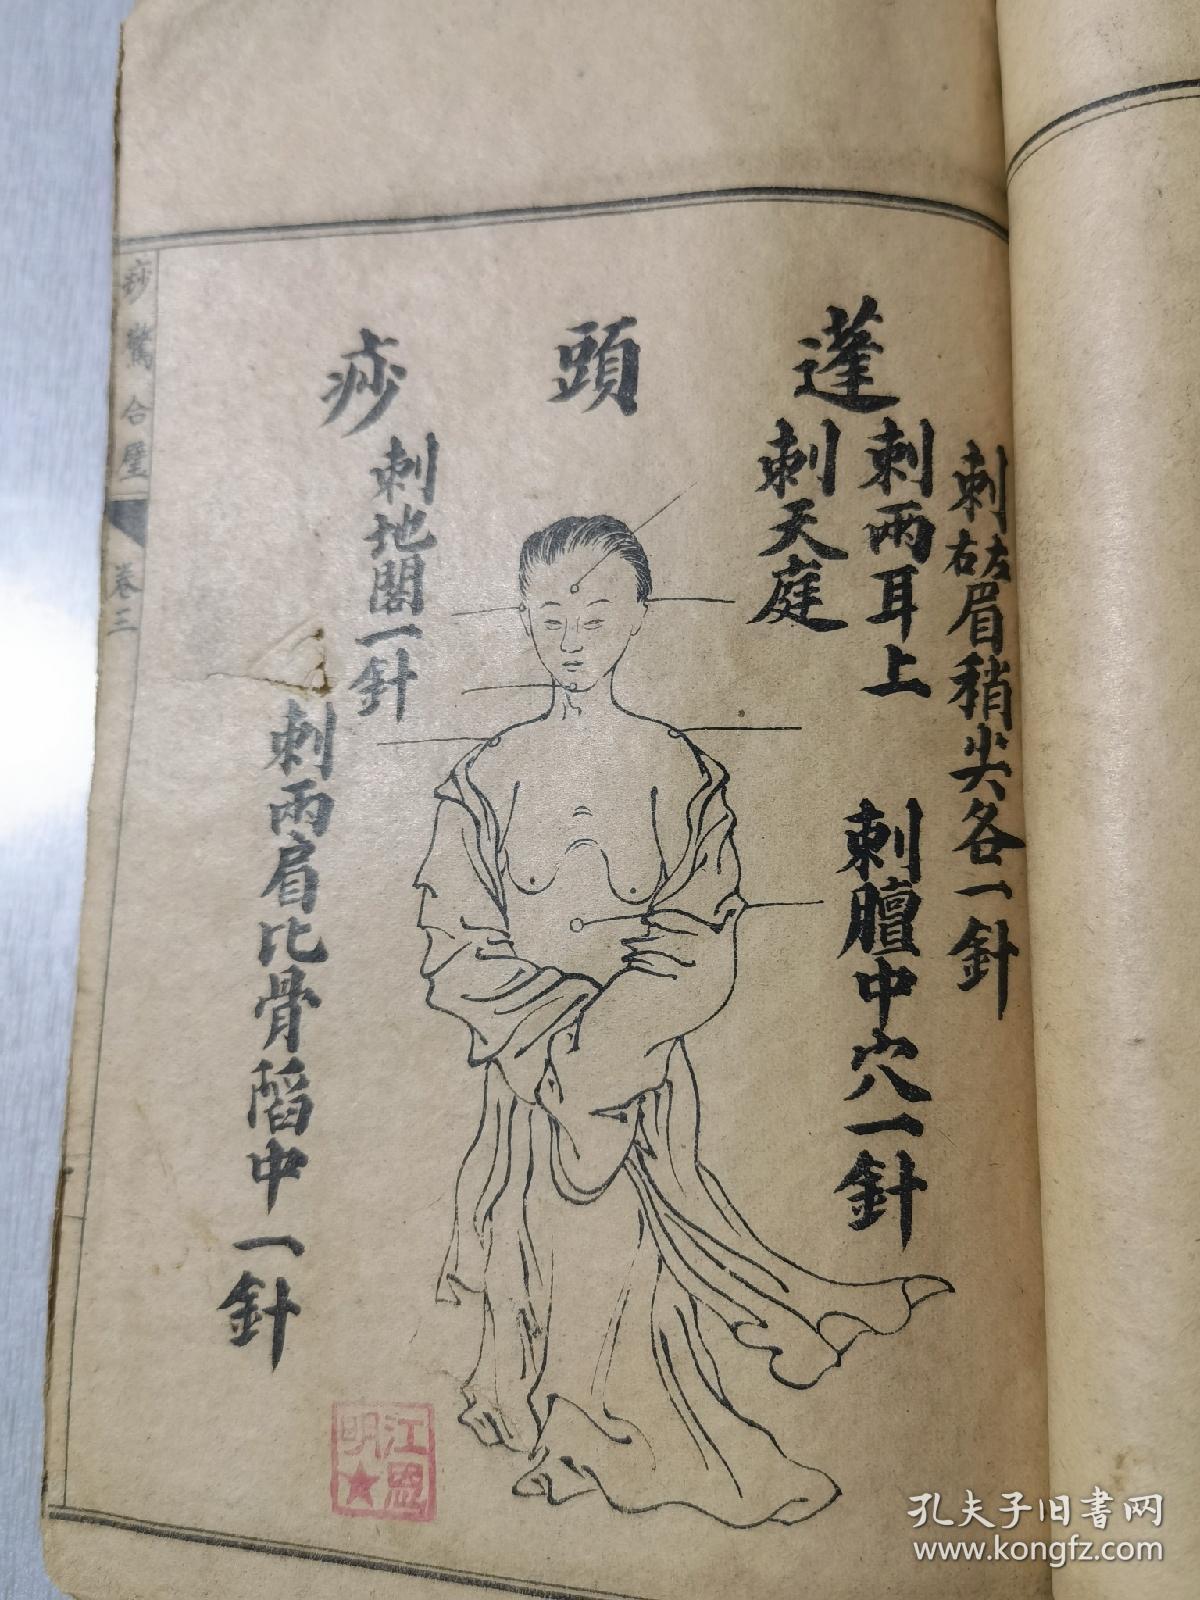 蓬頭痧
刺左右眉稍尖各一針
刺兩耳上
刺天庭
刺膻中穴一針
刺地閣一針
刺兩肩比骨陷中一針
痧驚合璧
卷三
江恩明
孔夫子旧书网
www.kongfz.com